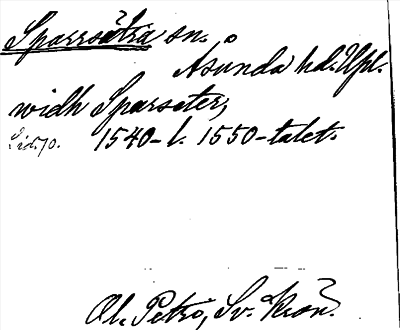 Sparrsätra sn.
Åsunda hd. Upl.
widh Sparseter,
Sid. 70. 1540- l. 1550-talet.
Ol. Petro, Sv. Krön.